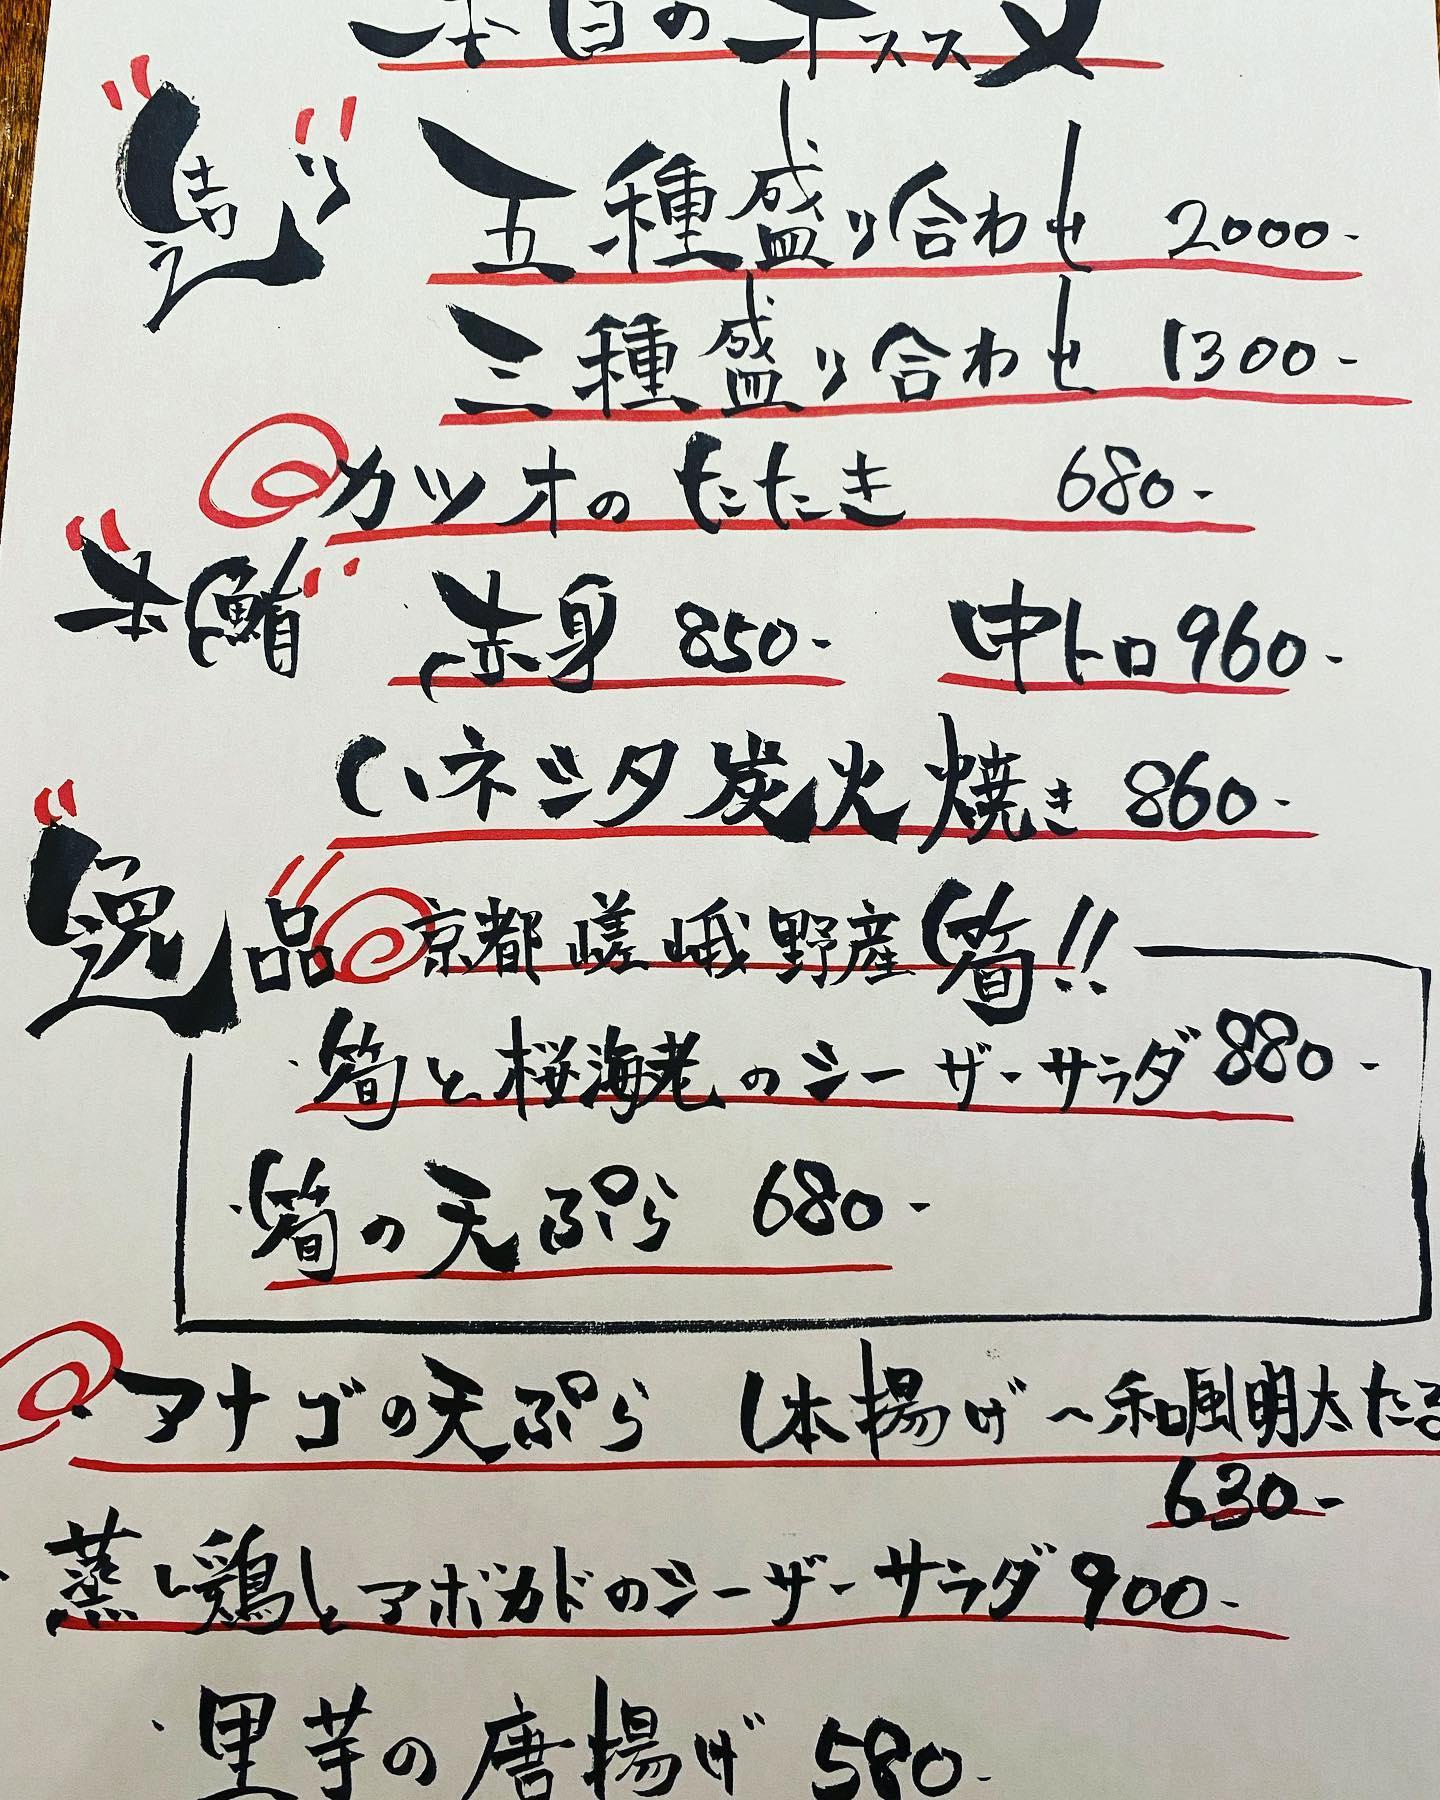 本日のオススメ
造り
五種盛り合わせ 2000-
三種盛り合わせ 1300-
カツオのたたき 680-
本鮪 赤身 850- 中トロ 960-
ハネシタ炭火焼き 860-
逸品 京都嵯峨野産筍!!
・筍と桜海老のシーザーサラダ 880-
・筍の天ぷら 680-
・アナゴの天ぷら 1本揚げ~和風明太たる
630-
・蒸し鶏とアボカドのシーザーサラダ 900-
・里芋の唐揚げ 580-